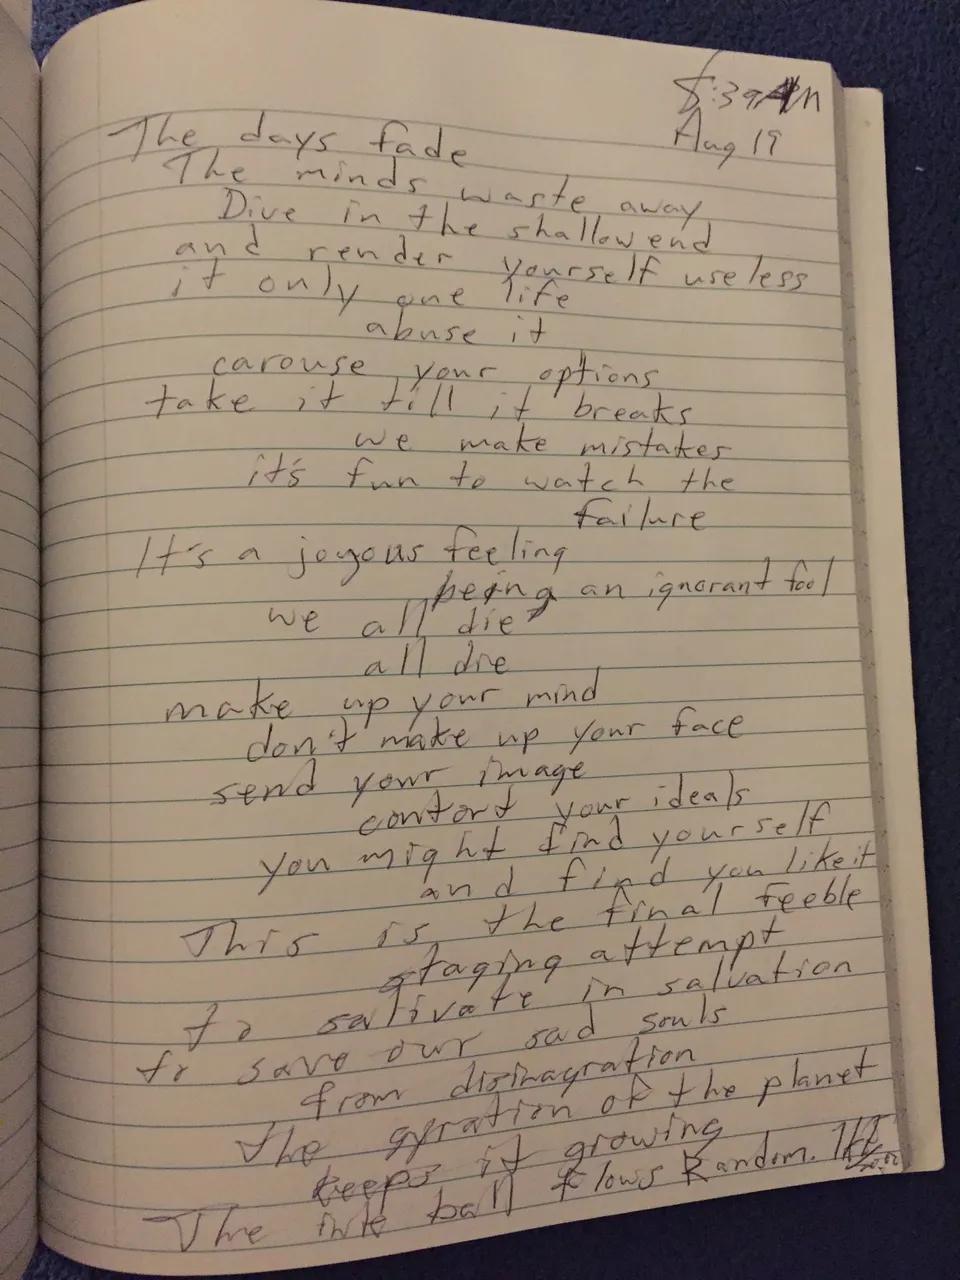 8:39AM
Aug 19
The days fade
The minds waste away
Dive in the shallow end
and render yourself useless
it only one life
abuse it
carouse your options
take it till it breaks
we make mistakes
it's fun to watch the
failure
It's a joyous feeling
being an ignorant fool
we all die
all die
make up your mind
don't make up your face
send your image
contort your ideals
you might find yourself
and find you like it
This is the final feeble
staging attempt
to salivate in salvation
to save our sad souls
from disinagration
the gyration of the planet
keeps it growing
The ink ball flows Random.